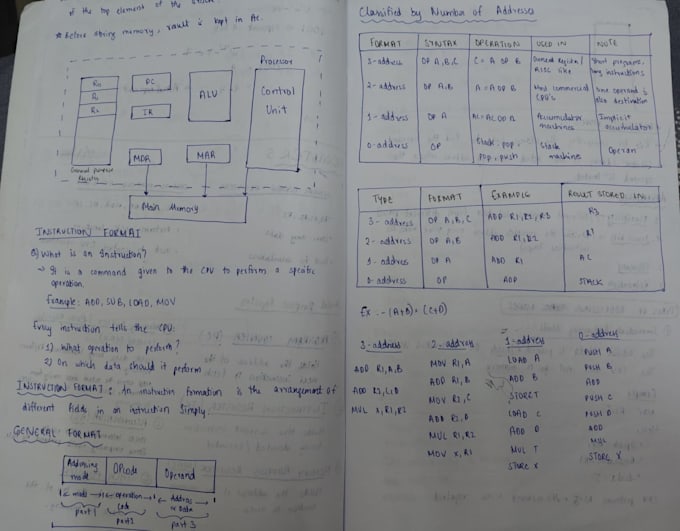 of the top element of the stack.
* Before string memory, result is kept in Ac.
Processor
R0
R1
Rn
PC
IR
ALU
Control
Unit
MDR
MAR
General purpose
Register
Main Memory
INSTRUCTION FORMAT
Q) What is an Instruction?
→ It is a command given to the CPU to perform a specific
operation.
Example: ADD, SUB, LOAD, MOV
Every instruction tells the CPU:
1) What operation to perform?
2) On which data should it perform
INSTRUCTION FORMAT: An instruction formation is the arrangement of
different fields in an instruction simply.
GENERAL FORMAT
Addressing mode | OPcode | Operand
mode | operation code | Address or Data
part 1 | part 2 | part 3
Classified by Number of Addresses
FORMAT | SYNTAX | OPERATION | USED IN | NOTE
3-address | OP A,B,C | C = A OP B | General Register/ RISC like | Short programs, long instructions
2-address | OP A,B | A = A OP B | Most commercial CPU's | One operand is also destination
1-address | OP A | AC = AC OP A | Accumulator machines | Implicit accumulator
0-address | OP | Stack-pop, pop, push | Stack machines | Operan
TYPE | FORMAT | EXAMPLE | RESULT STORED
3-address | OP A,B,C | ADD R1,R2,R3 | R3
2-address | OP A,B | ADD R1,R2 | R1
1-address | OP A | ADD R1 | AC
0-address | OP | ADD | STACK
Ex :- (A+B) * (C+D)
3-address
ADD R1,A,B
ADD R2,C,D
MUL X,R1,R2
2-address
MOV R1,A
ADD R1,B
MOV R2,C
ADD R2,D
MUL R1,R2
MOV X,R1
1-address
LOAD A
ADD B
STORE T
LOAD C
ADD D
MUL T
STORE X
0-address
PUSH A
PUSH B
ADD
PUSH C
PUSH D
ADD
MUL
STORE X